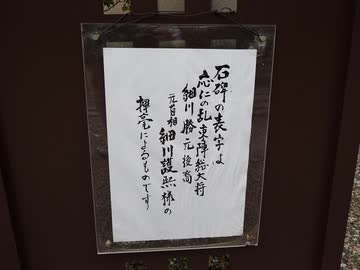 石碑の表字は
応仁の乱東陣総大将
細川勝元後裔
元首相細川護熙様の
揮毫によるものです